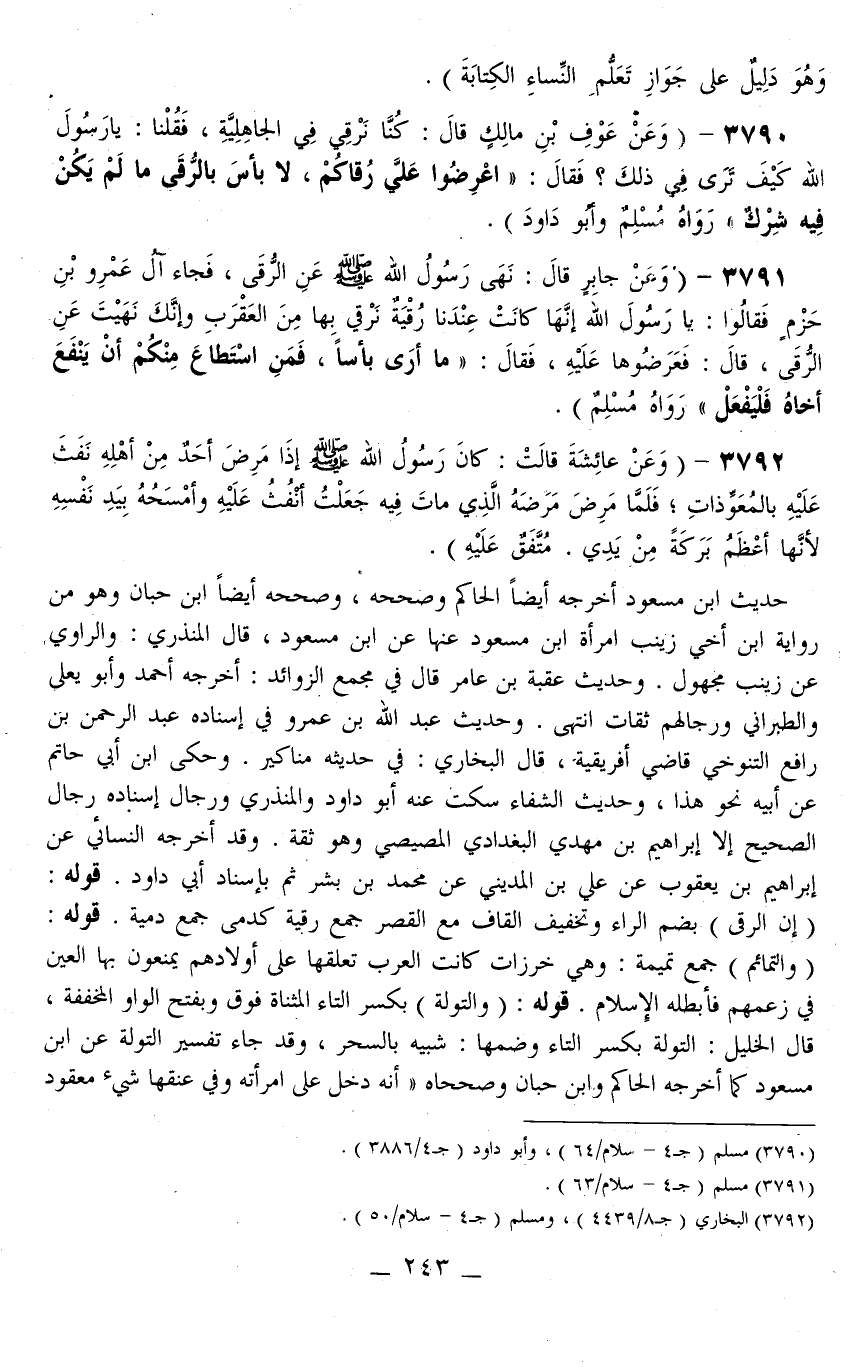 وَهُوَ دَلِيلٌ على جَوَازِ تَعَلُّمِ النِّساءِ الكِتابَةَ ) .
٣٧٩٠ – ( وَعَنْ عَوْفِ بْنِ مالِكٍ قالَ : كُنَّا نَرْقِي فِي الجاهِلِيَّةِ ، فَقُلْنا : يارَسُولَ
الله كَيْفَ تَرَى فِي ذلكَ ؟ فَقالَ : « اعْرِضُوا عَلَيَّ رُقاكُمْ ، لا بأسَ بالرُّقَى ما لَمْ يَكُنْ
فِيه شِرْكٌ » رَوَاهُ مُسْلِمٌ وأبُو دَاودَ ) .
٣٧٩١ – ( وَعَنْ جابِرٍ قالَ : نَهَى رَسُولُ الله ﷺ عَنِ الرُّقَى ، فَجاء آلُ عَمْرِو بْنِ
حَزْمٍ فَقالُوا : يا رَسُولَ الله إنَّهَا كانَتْ عِنْدَنا رُقْيَةٌ نَرْقِي بِها مِنَ العَقْرَبِ وإنَّكَ نَهَيْتَ عَنِ
الرُّقَى ، قالَ : فَعَرَضُوها عَلَيْهِ ، فَقالَ : « ما أرَى بأساً ، فَمَنِ اسْتَطاعَ مِنْكُمْ أنْ يَنْفَعَ
أخاهُ فَلْيَفْعَلْ » رَوَاهُ مُسْلِمٌ ) .
٣٧٩٢ – ( وَعَنْ عائِشَةَ قالَتْ : كانَ رَسُولُ الله ﷺ إذَا مَرِضَ أحَدٌ مِنْ أهْلِهِ نَفَثَ
عَلَيْهِ بالمُعَوِّذاتِ ؛ فَلَمَّا مَرِضَ مَرَضَهُ الَّذِي ماتَ فِيه جَعَلْتُ أنْفُثُ عَلَيْهِ وأمْسَحُهُ بِيَدِ نَفْسِهِ
لأنَّها أعْظَمُ بَرَكَةً مِنْ يَدِي . مُتَّفَقٌ عَلَيْهِ ) .
حديث ابن مسعود أخرجه أيضاً الحاكم وصححه ، وصححه أيضاً ابن حبان وهو من
رواية ابن أخي زينب امرأة ابن مسعود عنها عن ابن مسعود ، قال المنذري : والراوي
عن زينب مجهول . وحديث عقبة بن عامر قال في مجمع الزوائد : أخرجه أحمد وأبو يعلى
والطبراني ورجالهم ثقات انتهى . وحديث عبد الله بن عمرو في إسناده عبد الرحمن بن
رافع التنوخي قاضي أفريقية ، قال البخاري : في حديثه مناكير . وحكى ابن أبي حاتم
عن أبيه نحو هذا ، وحديث الشفاء سكت عنه أبو داود والمنذري ورجال إسناده رجال
الصحيح إلا إبراهيم بن مهدي البغدادي المصيصي وهو ثقة . وقد أخرجه النسائي عن
إبراهيم بن يعقوب عن علي بن المديني عن محمد بن بشر ثم بإسناد أبي داود . قوله :
( إن الرقى ) بضم الراء وتخفيف القاف مع القصر جمع رقية كدمى جمع دمية . قوله :
( والتمائم ) جمع تميمة : وهي خرزات كانت العرب تعلقها على أولادهم يمنعون بها العين
في زعمهم فأبطله الإسلام . قوله : ( والتولة ) بكسر التاء المثناة فوق وبفتح الواو المخففة ،
قال الخليل : التولة بكسر التاء وضمها : شبيه بالسحر ، وقد جاء تفسير التولة عن ابن
مسعود كما أخرجه الحاكم وابن حبان وصححاه « أنه دخل على امرأته وفي عنقها شيء معقود
(٣٧٩٠) مسلم ( جـ٤ – سلام/٦٤ ) ، وأبو داود ( جـ٣٨٨٦/٤ ) .
(٣٧٩١) مسلم ( جـ٤ – سلام/٦٣ ) .
(٣٧٩٢) البخاري ( جـ٤٤٣٩/٨ ) ، ومسلم ( جـ٤ – سلام/٥٠ ) .
– ٢٤٣ –